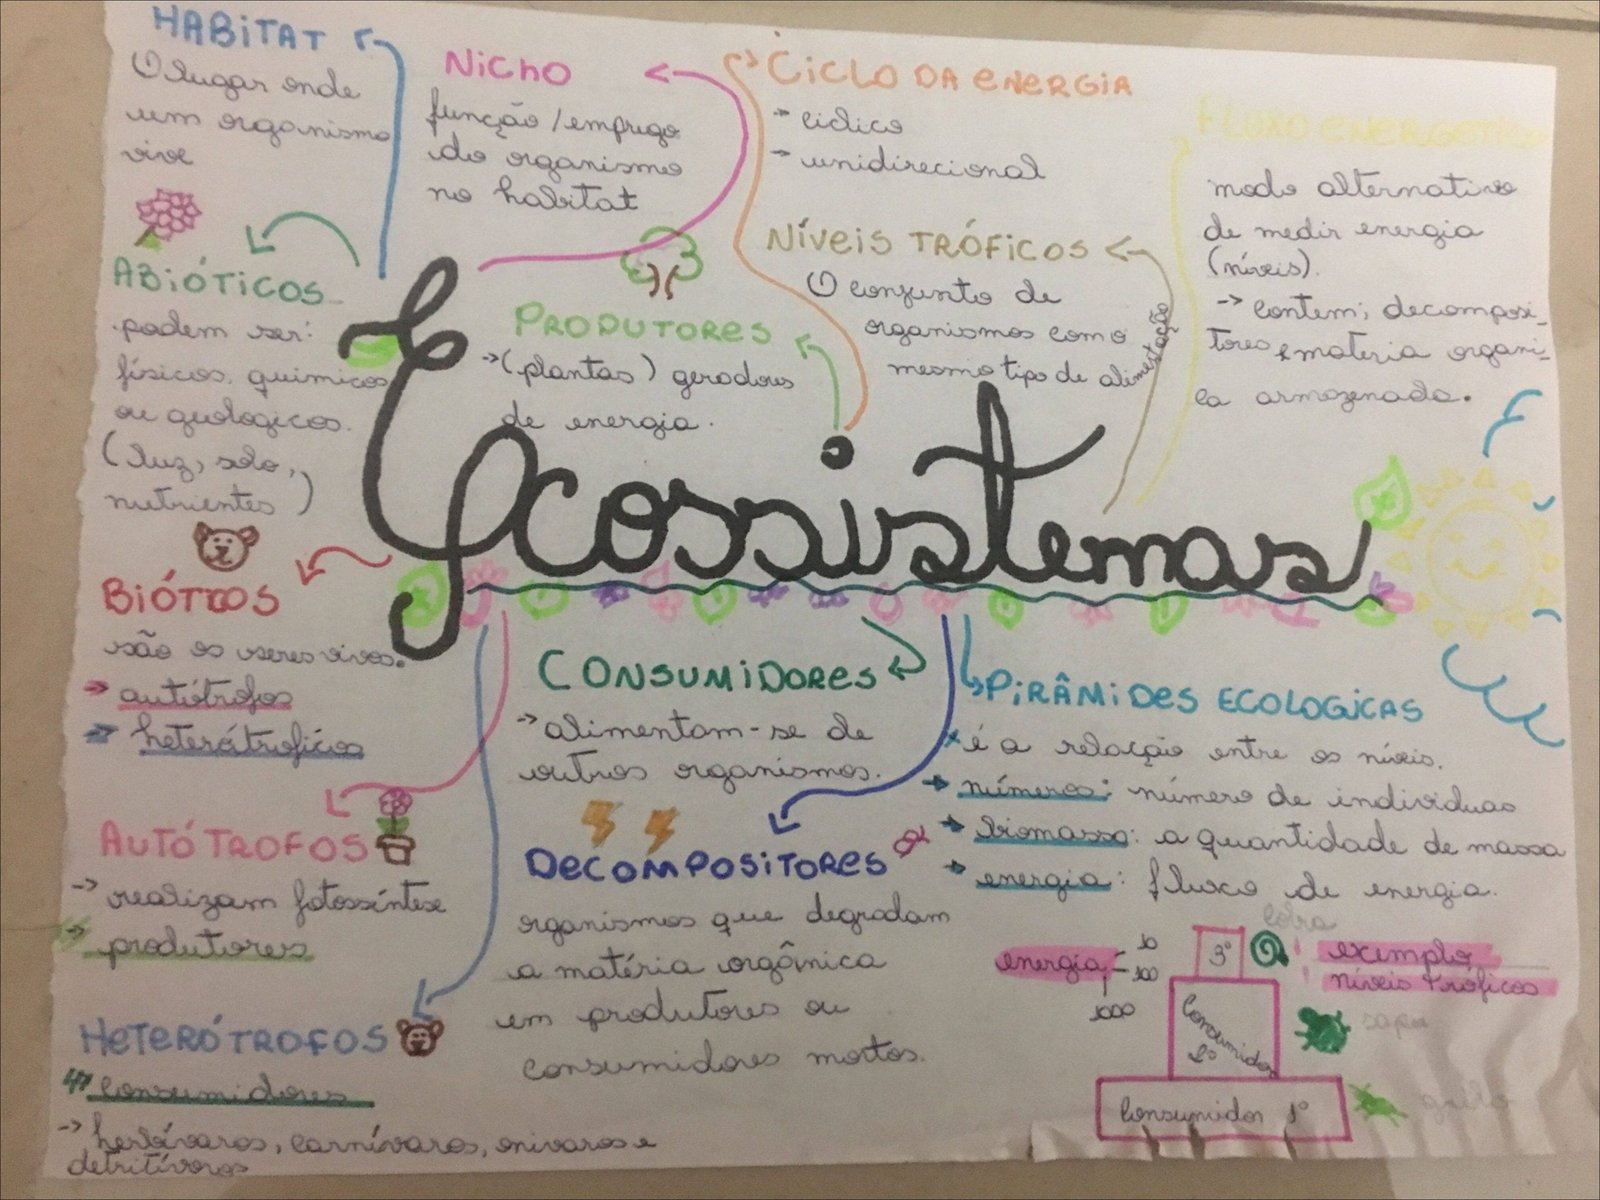 HABITAT
O lugar onde
um organismo
vive
NICHO
função/emprego
do organismo
no habitat
CICLO DA ENERGIA
→ ciclico
→ unidirecional
FLUXO ENERGETICO
modo alternativo
de medir energia
(níveis).
-> contem; decomposi-
tores e materia organi-
ca armazenada.
NÍVEIS TRÓFICOS
O conjunto de
organismos com o
mesmo tipo de alimentação
ABIÓTICOS
podem ser:
físicos, químicos
ou geologicos.
(luz, solo,
nutrientes)
PRODUTORES
->(plantas) geradores
de energia.
Ecossistemas
BIÓTICOS
são os seres vivos.
→ autótrofos
→ heterótroficos
AUTÓTROFOS
-> realizam fotossíntese
→ produtores
HETERÓTROFOS
consumidores
-> herbívoros, carnívoros, onivoros e
detritívoros
CONSUMIDORES
-> alimentam-se de
outros organismos.
DECOMPOSITORES
organismos que degradam
a matéria orgânica
em produtores ou
consumidores mortos.
PIRÂMIDES ECOLOGICAS
* é a relação entre os níveis.
→ números: número de individuos
→ biomassa: a quantidade de massa
→ energia: fluxo de energia.
cobra
energia
10
100
1000
3º
exemplo
níveis tróficos
Consumidor
2º
sapo
Consumidor 1º
grilo